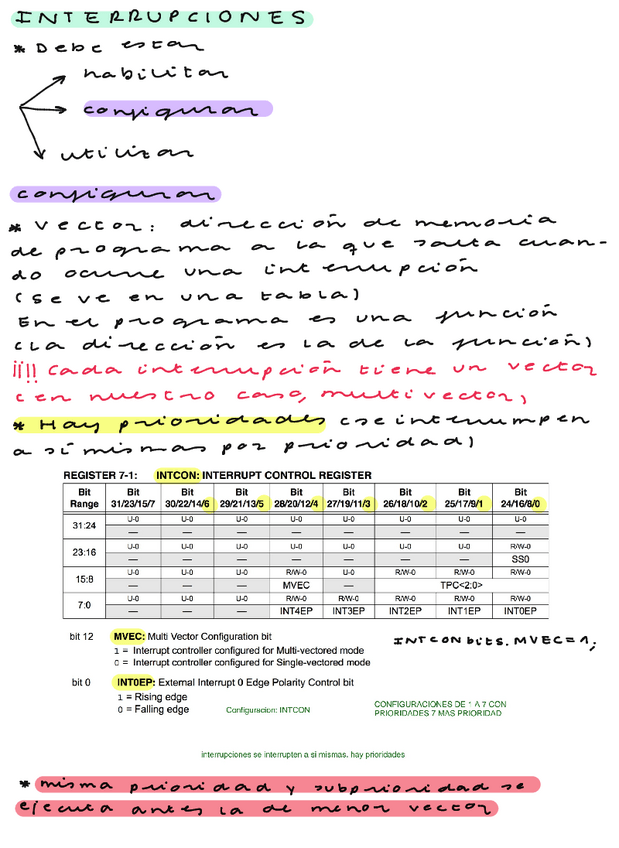 INTERRUPCIONES
* Debe estar
habilitar
configurar
utilizar
configurar
* Vector: dirección de memoria
de programa a la que salta cuan-
do ocurre una interrupción
(se ve en una tabla)
En el programa es una función
(la dirección es la de la función)
¡¡!! Cada interrupción tiene un vector
(en nuestro caso, multivector)
* Hay prioridades (se interrumpen
a sí mismas por prioridad)
REGISTER 7-1: INTCON: INTERRUPT CONTROL REGISTER
Bit Range Bit 31/23/15/7 Bit 30/22/14/6 Bit 29/21/13/5 Bit 28/20/12/4 Bit 27/19/11/3 Bit 26/18/10/2 Bit 25/17/9/1 Bit 24/16/8/0
31:24 U-0 U-0 U-0 U-0 U-0 U-0 U-0 U-0
— — — — — — — —
23:16 U-0 U-0 U-0 U-0 U-0 U-0 U-0 R/W-0
— — — — — — — SS0
15:8 U-0 U-0 U-0 R/W-0 U-0 R/W-0 R/W-0 R/W-0
— — — MVEC — TPC<2:0>
7:0 U-0 U-0 U-0 R/W-0 R/W-0 R/W-0 R/W-0 R/W-0
— — — INT4EP INT3EP INT2EP INT1EP INT0EP
bit 12 MVEC: Multi Vector Configuration bit
INTCONbits.MVEC=1;
1 = Interrupt controller configured for Multi-vectored mode
0 = Interrupt controller configured for Single-vectored mode
bit 0 INT0EP: External Interrupt 0 Edge Polarity Control bit
1 = Rising edge
0 = Falling edge
Configuracion: INTCON
CONFIGURACIONES DE 1 A 7 CON
PRIORIDADES 7 MAS PRIORIDAD
interrupciones se interrupten a si mismas. hay prioridades
* misma prioridad y subprioridad se
ejecuta antes la de menor vector